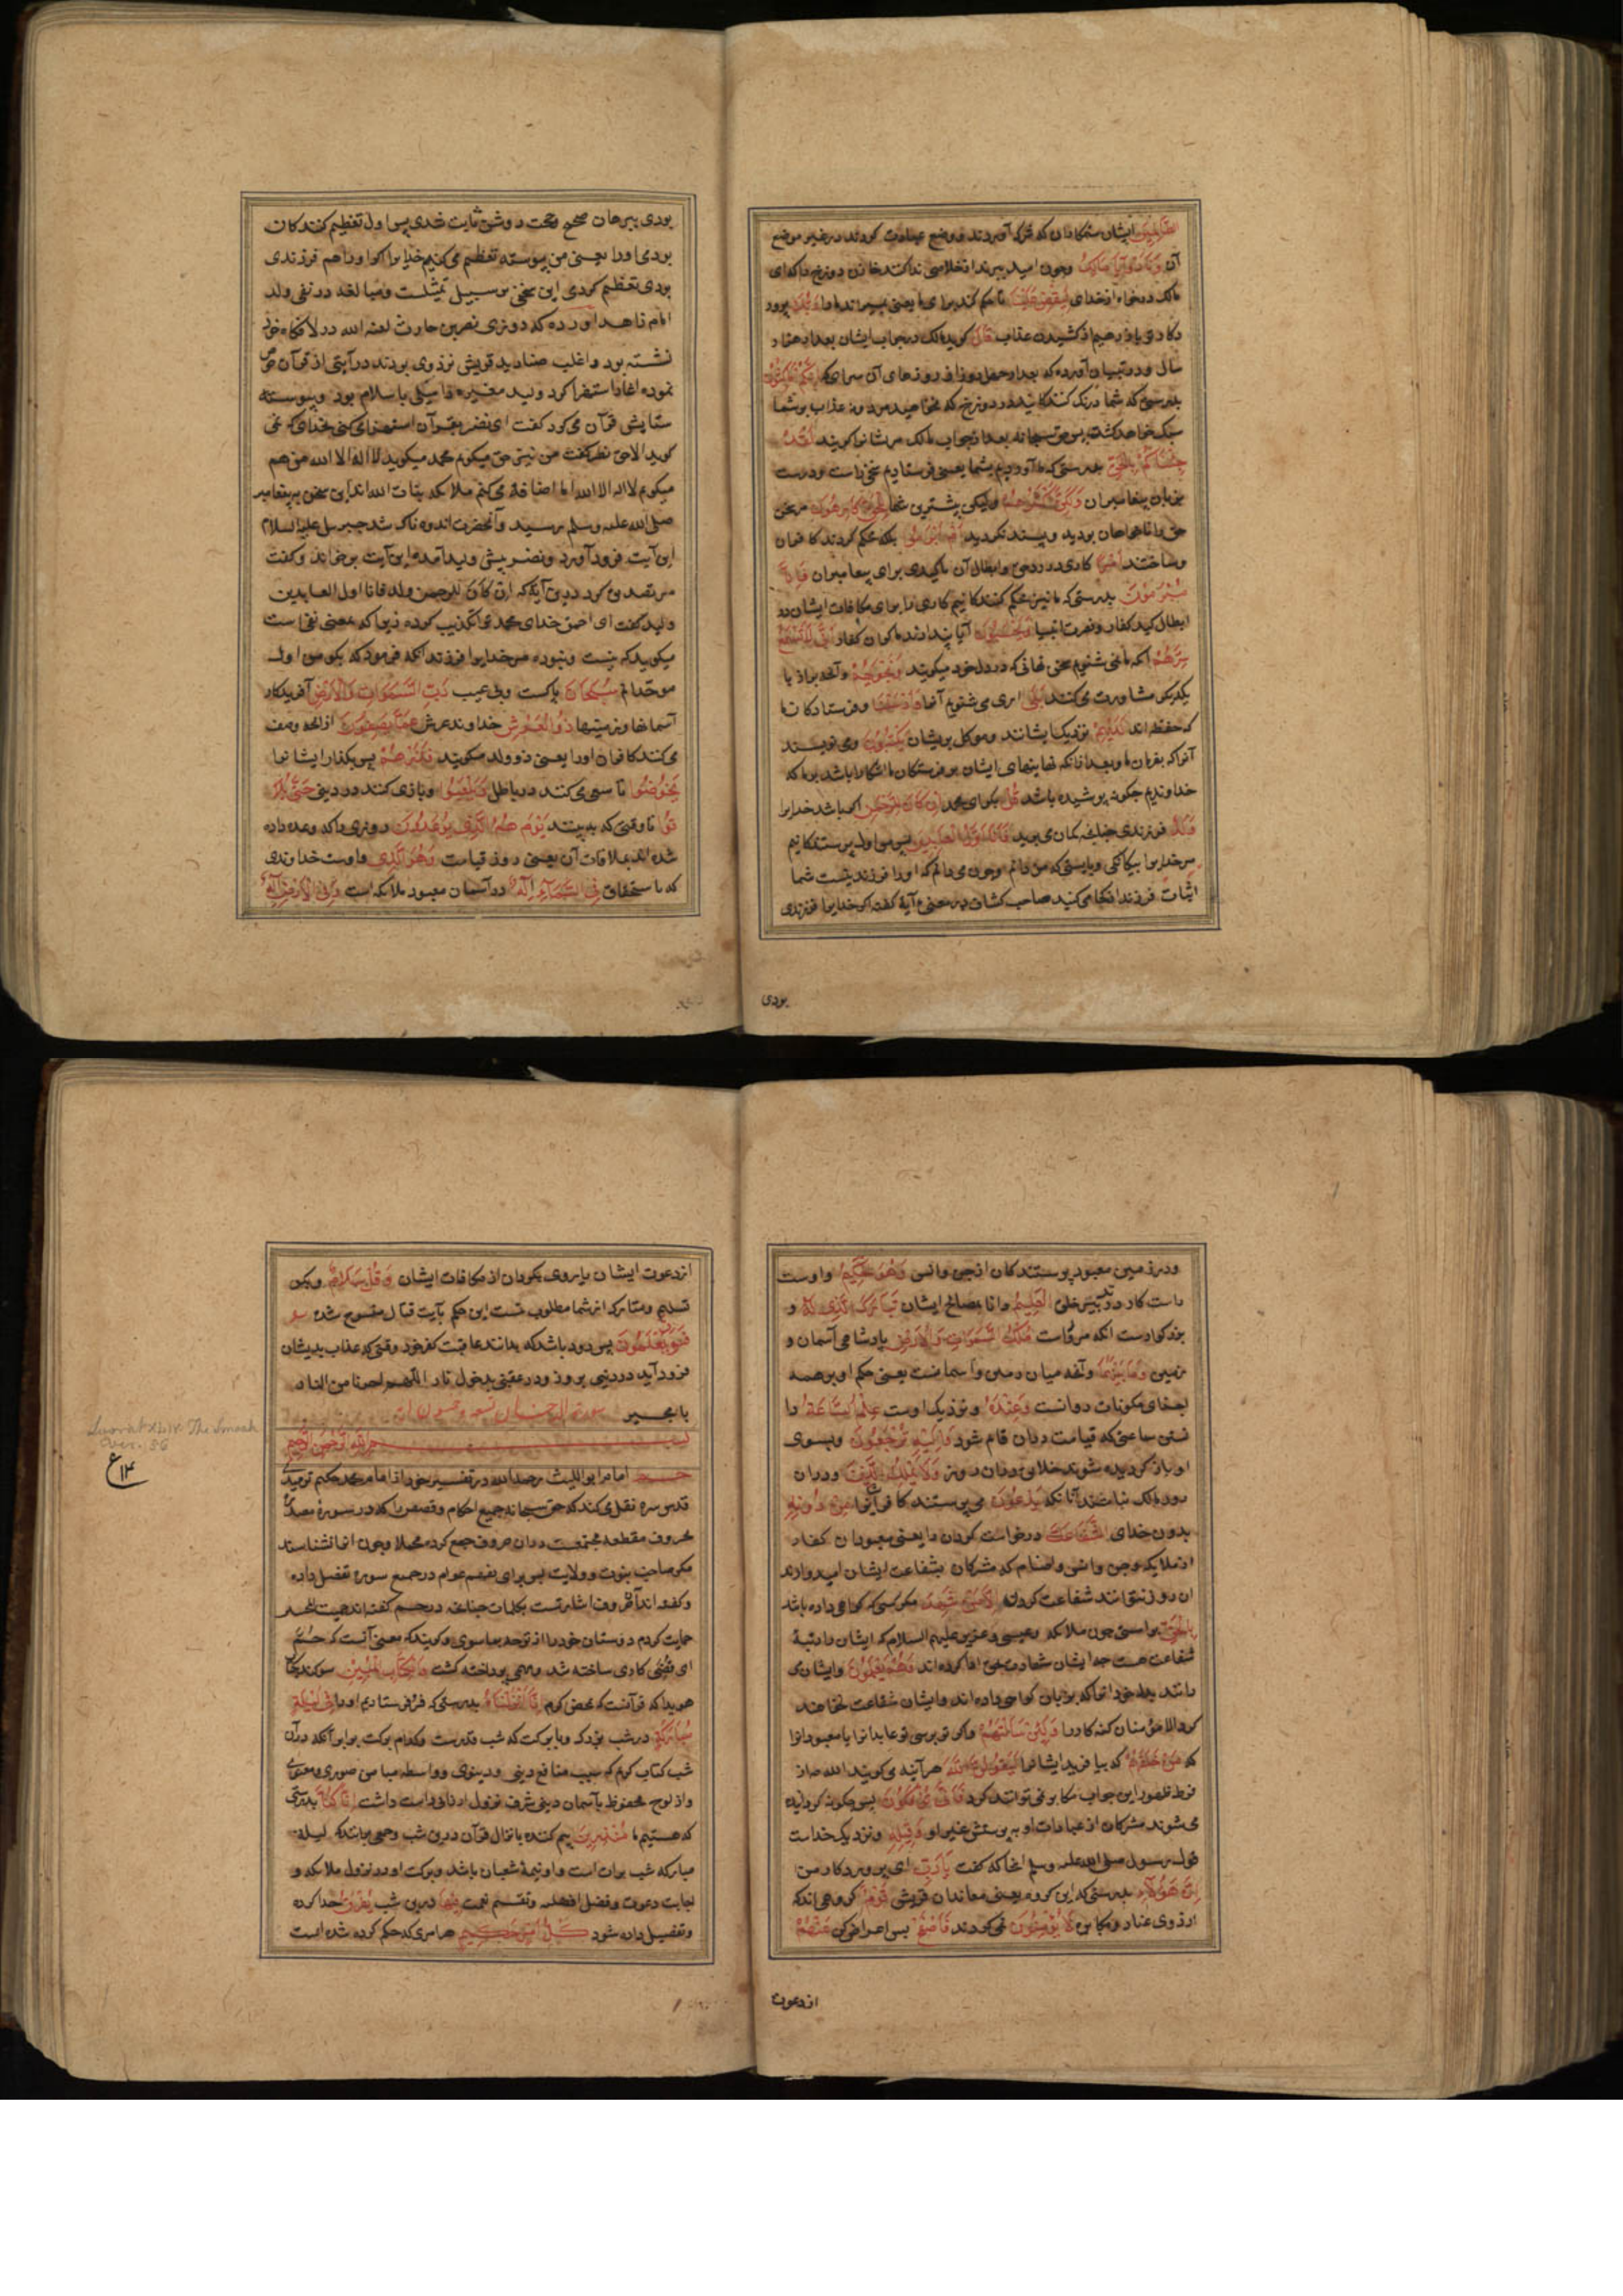 الظالمین ایشان ستمکاران که شرک آوردند و وضع عبادت کردند در غیر موضع
آن ونادوا یا مالک وچون امید ببرند از خلاصی ندا کنند خازن دوزخ را که ای
مالک درخواه از خدای لیقض علینا تا حکم کند برای ما یعنی بمیراند ما را ربک پرورد
کار تو باز رهیم از کشیدن عذاب قال کوید مالک در جواب ایشان بعد از هزار
سال ودر تبیان آورده که بعد از چهل روز از روزهای آن سرای که انکم ماکثون
بدرستی که شما درنک کنندکانید در دوزخ
سبک خواهد کشت پس حق سبحانه بعد از جواب مالک مر ایشانرا کوید لقد
جئناکم بالحق بدرستی که ما آوردیم بشما یعنی فرستادیم سخن راست ودرست
بزبان پیغامبران ولکن اکثرکم ولیکن بیشترین شما للحق کارهون مر سخن
حق را ناخواهان بودید وپسند نکردید ام ابرموا بلکه محکم کردند کافران
وساختند امرا کاری در رد حق وابطال آن بکیدی برای پیغامبران فانا
مبرمون بدرستی که ما نیز محکم کنندکانیم کاری را برای مکافات ایشان در
ابطال کید کفار ونصرت انبیا ام یحسبون آیا پندارند کافران کفار انا لا نسمع
سرهم آنکه ما نمی شنویم سخن نهانی که در دل خود میکویند ونجویهم وآنچه براز با
یکدیکر مشاورت می کنند بلی آری می شنویم آنها ورسلنا وفرستادکان ما
که حفظه اند لدیهم نزدیک ایشانند وموکل بر ایشان یکتبون می نویسند
آنرا که بفرمان ما وبعد از آنکه نهانیهای ایشان بر فرستکان ما آشکارا باشد بر ما که
خداوندیم چکونه پوشیده باشد قل بکو ای محمد ان کان للرحمن اکر باشد خدایرا
ولد فرزندی چنانچه کمان می برید فانا اول العابدین پس من اول پرستندکانیم
مر خدایرا بیکانکی وبایستی که من دانم وچون می دانم که او را فرزند نیست شما
اثبات فرزند از کجا می کنید صاحب کشاف در معنی آیة کفته اکر خدایرا فرزندی
بودی
بودی ببرهان صحیح وحجت روشن ثابت شدی پس اول تعظیم کنندکان
بودی او را یعنی من پیوسته تعظیم می کنم خدایرا اکر او را هم فرزندی
بودی تعظیم کردی این سخن بر سبیل تمثیلست ومبالغه در نفی ولد
امام زاهد آورده که روزی نضر بن حارث لعنه الله در لا نکاه خود
نشسته بود واغلب صنادید قریش نزد وی بودند در آیتی از قرآن خوض
نموده آغاز استهزا کرد ولید مغیره را میلی باسلام بود وپیوسته
ستایش قرآن می کرد کفت ای نضر بقرآن استهزا می کنی بخدای که نمی
کوید الا حق نضر کفت من نیز حق میکویم محمد میکوید لا اله الا الله من هم
میکویم لا اله الا الله اما اضافه می کنم ملائکه بنات الله اند این سخن به پیغامبر
صلی الله علیه وسلم رسید وآنحضرت اندوهناک شد جبرئیل علیه السلام
این آیت فرود آورد ونضر پیش ولید آمده این آیت برخواند وکفت
مرا تصدیق کرد درین آیة که ان کان للرحمن ولد فانا اول العابدین
ولید کفت ای احمق خدای محمد ترا تکذیب کرده زیرا که معنی نفی است
میکوید که نیست ونبوده مر خدایرا فرزند آنکه فرمود که بکو من اول
موحدانم سبحان پاکست وبی عیب رب السموات والارض آفریدکار
آسمانها وزمینها رب العرش خداوند عرش عما یصفون از آنچه وصف
می کنند کافران او را یعنی ذو ولد میکویند فذرهم پس بکذار ایشانرا
یخوضوا تا سعی می کنند در باطل ویلعبوا وبازی کنند در دینی حتی یلا
قوا تا وقتی که به بینند یومهم الذی یوعدون روزی را که وعده داده
شده اند بملاقات آن یعنی روز قیامت وهو الذی واوست خداوندی
که باستحقاق فی السماء اله در آسمان معبود ملائکه است وفی الارض اله
ودر زمین معبود پرستندکان از جن وانس وهو الحکیم واوست
راست کار در تدبیر خلق العلیم دانا بمصالح ایشان تبارک الذی له و
بزرکوارست آنکه مر اوراست ملک السموات والارض پادشاهی آسمان و
زمین وما بینهما وآنچه میان زمین وآسمانست یعنی حکم او بر همه
اجزای مکونات روانست وعنده ونزدیک اوست علم الساعة دا
نستن ساعتی که قیامت در آن قایم شود والیه ترجعون وبسوی
او باز کردیده شوند خلایق در آن روز ولا یملک الذین ودر آن
روز مالک نباشند آنانکه یدعون می پرستند کافران آنها را من دونه
بدون خدای الشفاعة درخواست کردن را یعنی معبودان کفار
از ملائکه وجن وانس واصنام که مشرکان بشفاعت ایشان امیدوارند
آن روز نتوانند شفاعت کردن الا من شهد مکر کسی که کواهی داده باشد
بالحق براستی چون ملائکه وعیسی وعزیر علیهم السلام که ایشان را رتبهٔ
شفاعت هست چه ایشان شهادت حق ادا کرده اند وهم یعلمون وایشان می
دانند بدل خود آنرا که بزبان کواهی داده اند وایشان شفاعت نخواهند
کرد الا مؤمنان کنه کار را ولئن سالتهم واکر تو پرسی تو عابدانرا یا معبودانرا
که من خلقهم که بیافرید ایشانرا لیقولن الله هرآینه می کویند الله چه از
فرط ظهور این جواب مکابره نمی توانند کرد فانی یؤفکون پس چکونه کردانیده
می شوند مشرکان از عبادات او بپرستش غیر او وقیله ونزدیک خداست
قول رسول صلی الله علیه وسلم آنجا که کفت یا رب ای پروردکار من
ان هؤلاء بدرستی که این کروه یعنی معاندان قریش قوم کروهی اند که
از روی عناد ومکابره لا یؤمنون نمی کروند فاصفح پس اعراض کن عنهم
از دعوت
از دعوت ایشان یا روی بکردان از مکافات ایشان وقل سلام وبکو
تسلیم ومتارکه از شما مطلوب نست این حکم بآیت قتال منسوخ شده
فسوف یعلمون پس زود باشد که بدانند عاقبت کفر خود وقتی که عذاب بدیشان
فرود آید در دینی بروز ودر عقبی بدخول نار اللهم اجرنا من النار
یا مجیر سورة الدخان تسع وخمسون آیة
بسم الله الرحمن الرحیم
حم امام ابو اللیث رحمه الله در تفسیر خود از امام محمد حکیم ترمدی
قدس سره نقل می کند که حق سبحانه جمیع احکام وقصص را که در سورهٔ مصدر
بحروف مقطعه مجتمعست در آن حروف جمع کرده مجملا وچون آنرا نشناسند
مکر صاحب نبوت وولایت پس برای تفهیم عوام در جمیع سوره تفصیل داده
وکفته اند آن حروف اشارتست بکلمات چنانچه در حم کفته اند حمیت
حمایت کردم دوستان خود را از توجه بما سوی وکویند که معنی آنست که حم
ای قضی کاری ساخته شد ومهمی پرداخته کشت والکتاب المبین سوکند بکتاب
هویدا که قرآنست که بمحض کرم انا انزلناه بدرستی که فرو فرستادیم او را فی لیلة
مبارکة در شب بزرک وبا برکت که شب قدرست وکدام برکت برابر آنکه در آن
شب کتاب کریم که سبب منافع دینی ودینوی وواسطه میامن صوری ومعنوی
واز لوح محفوظ بآسمان دینی شرف نزول ارزانی داشت انا کنا بدرستی
که هستیم ما منذرین بیم کننده بانزال قرآن درین شب وجمعی برآنند که لیلهٔ
مبارکه شب برات است واو نیمهٔ شعبان باشد وبرکت او در نزول ملائکه و
اجابت دعوت وفضل اقضیه وتقسیم نعمت فیها درین شب یفرق جدا کرده
وتفصیل داده شود کل امر حکیم هر امری که حکم کرده شده است
Soorat XLIV. The Smoak
Ver. 56
ع ۱۳